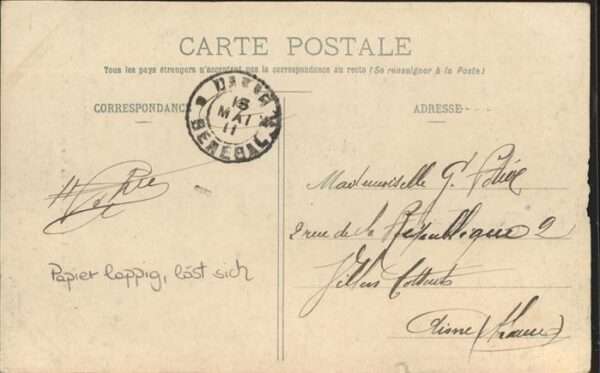 CARTE POSTALE
Tous les pays étrangers n'acceptent pas la correspondance au recto (Se renseigner à la Poste)
CORRESPONDANCE
ADRESSE
DAKAR
16
MAI
11
SÉNÉGAL
Mademoiselle G.
2 rue de la République 2
Aisne (France)
Papier lappig, läst sich